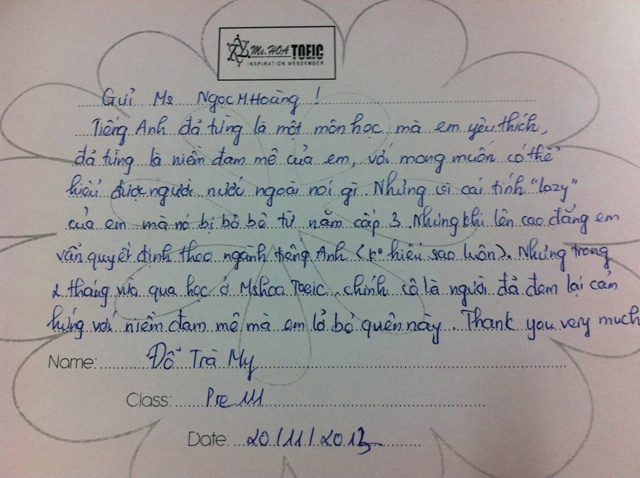 Ms. HOA TOEIC
INSPIRATION MESSENGER
Gửi Ms Ngọc M.Hoàng !
Tiếng Anh đã từng là một môn học mà em yêu thích,
đã từng là niềm đam mê của em, với mong muốn có thể
hiểu được người nước ngoài nói gì. Nhưng vì cái tính "lazy"
của em mà nó bị bỏ bê từ năm cấp 3. Nhưng khi lên cao đẳng em
vẫn quyết định theo ngành tiếng Anh (k° hiểu sao luôn). Nhưng trong
2 tháng vừa qua học ở Mshoa Toeic, chính cô là người đã đem lại cảm
hứng với niềm đam mê mà em lỡ bỏ quên này. Thank you very much
Name: Đỗ Trà My
Class: Pre 111
Date: 20/11/2013